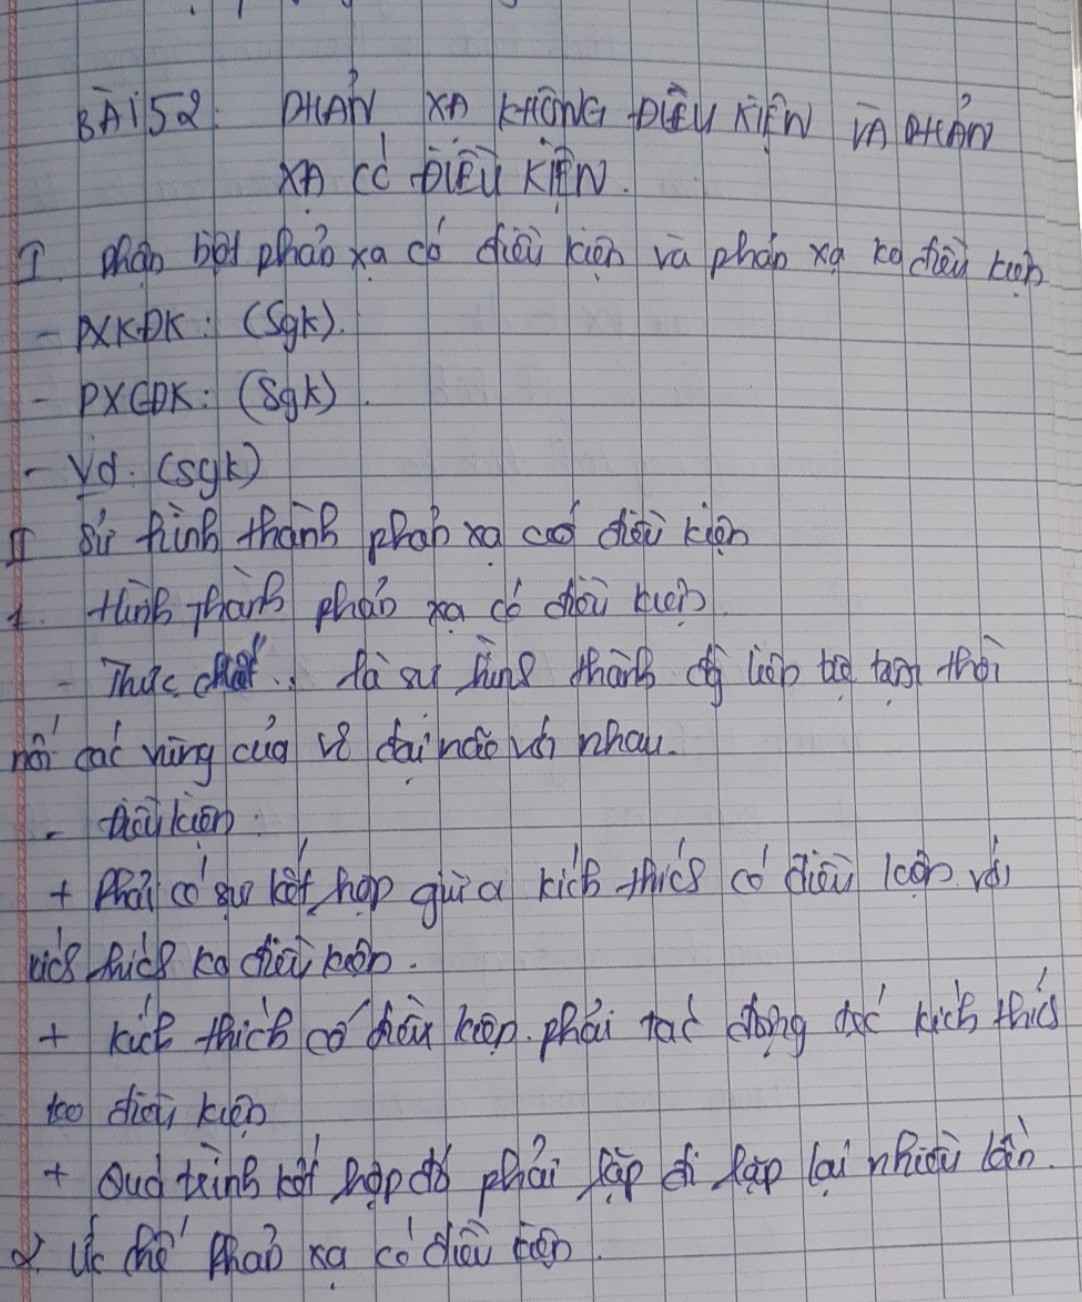 BÀI 52: PHẢN XẠ KHÔNG ĐIỀU KIỆN VÀ PHẢN
XẠ CÓ ĐIỀU KIỆN.
I. phân biệt phản xạ có điều kiện và phản xạ ko điều kiện
- PXKĐK: (Sgk).
- PXCĐK: (Sgk).
- Vd: (sgk)
II Sự hình thành phản xạ có điều kiện
1. Hình thành phản xạ có điều kiện.
- Thực chất: là sự hình thành đg liên hệ tạm thời
nối các vùng của vỏ đại não với nhau.
- điều kiện:
+ Phải có sự kết hợp giữa kích thích có điều kiện với
kích thích ko điều kiện.
+ kích thích có điều kiện phải tác động kích thích
ko điều kiện
+ Quá trình kết hợp đó phải lặp đi lặp lại nhiều lần.
2. Ức chế phản xạ có điều kiện.